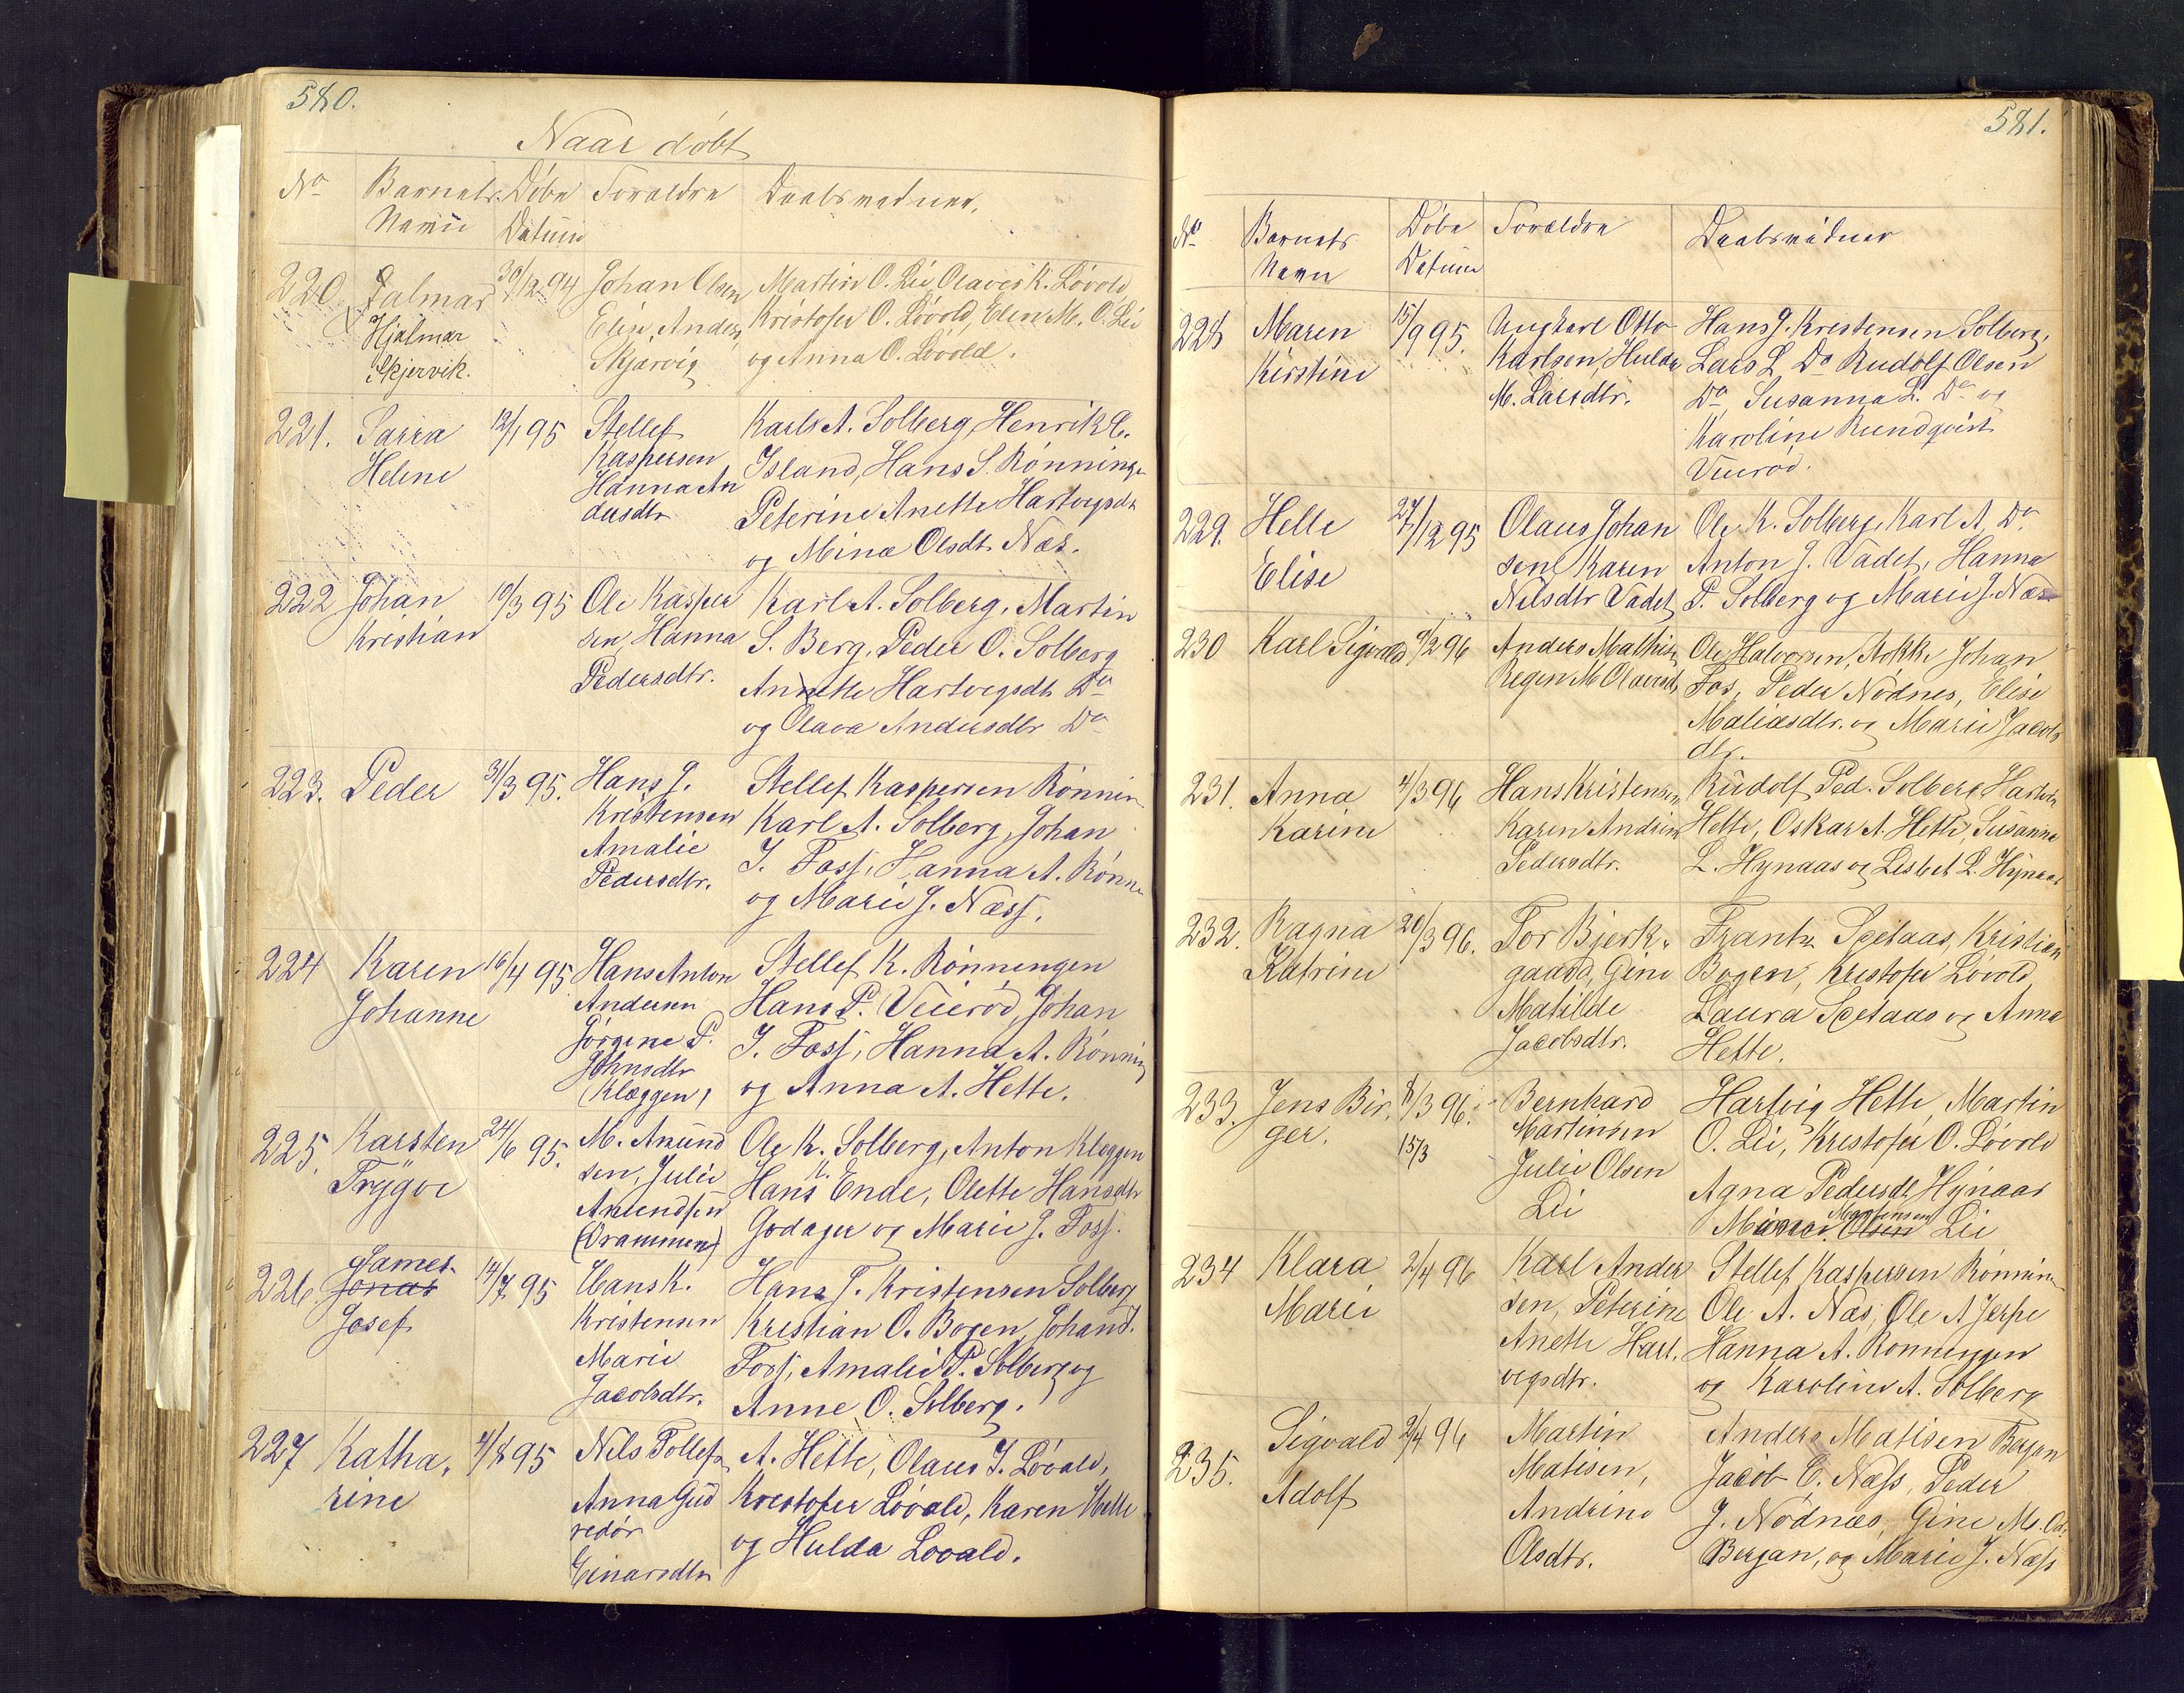 580.
Naar døbt
No Barnets Døbe Forældre Daabsvidner.
Navn Datum
220. Jalmar 30/12 94 Johan Olsen Martin O. Lii, Olaves K. Løvold
Hjalmar Elin Anders Kristofer O. Løvold, Elen M. O. Lii
Skjervik. Skjørvig og Anna O. Løvold.
221. Sarra 12/1 95 Stellef Karls A. Solberg, Henrik C.
Helene Kaspersen Island, Hans S. Rønninge
Hanna An Peterine Anette Hartvigsdt
dersdtr og Mina Olsdt. Næs.
222 Johan 10/3 95 Ole Kasper Karl A. Solberg, Martin
Kristian sen, Hanna S. Berg, Peder O. Solberg
Pedersdtr. Annette Hartvigsdt Do
og Olava Andersdtr Do
223. Peder 31/3 95. Hans J. Stellef Kaspersen Rønnin
Kristensen Karl A. Solberg, Johan
Amalie J. Foss, Hanna A. Rønn
Pedersdtr. og Marie J. Næss.
224 Karen 16/4 95 Hans Anton Stellef K. Rønningen
Johanne Andersen Hans P. Veierød, Johan
Jørgine P. J. Foss, Hanna A. Rønnin
Johnsdtr og Anna A. Hette.
(Kleggen)
225. Karsten 24/6 95. M. Amund Ole K. Solberg, Anton Kleggen
Trygve sen, Julie Hans K. Ende, Olette Hansdtr
Amundsen Godager og Marie J. Foss.
(Drammen)
James
226 Jonas 14/7 95 Hans K. Hans J. Kristensen Solberg
Josef Kristensen Kristian O. Bogen, Johan J.
Marie Foss, Amalie P. Solberg og
Jacobsdtr. Anne O. Solberg.
227 Katha, 4/8 95 Nils Tollefs A. Hette, Olaus J. Løvald,
rine Anna Gud Kristofer Løvald, Karen Hette
redør og Hulda Løvald.
Einarsdtr
581.
No Barnets Døbe Forældre Daabsvidner
Navn Datum
228 Maren 15/9 95. Otto Hans J. Kristensen Solberg,
Kirstine Karlsen, Hulda Lars L. Do Rudolf Olsen
M. Larsdtr. Do, Susanna L. Do og
Karoline Rundqvist
Veierød.
229. Helle 27/12 95 Olaus Johan Ole K. Solberg, Karl A. Do
Elise sen, Karen Anton J. Vadet, Hanna
Nilsdtr Vadet P. Solberg og Marie J. Næs
230 Karl Sigvald 9/2 96 Anders Mathis Ole Halvorsen, Johan
Regin M Olavsdt Fos, Peder Nødnes, Elise
Maliasdtr. og Marie Jacobs
dtr.
231. Anna 4/3 96 Hans Kristensen Rudolf Ped. Solberg, Hartvi
Karine Karen Andrin Hette, Oskar A. Hette, Susanna
Pedersdtr. L. Hynaas og Lisbet L. Hynaas
232. Ragna 20/3 96. Tor Bjerk. Frantz Setaas, Kristian
Katrine gaard, Gine Bogen, Kristofer Løvold
Matilde Laura Setaas og Anna
Jacobsdtr. Hette.
233. Jens Bir. 8/3 96. Bernhard Hartvig Hette, Martin
ger. 15/3 Martinsen O. Lii, Kristofer O. Løvold
Julie Olsen Agna Pedersdt Hynaas
Martensen
Lii Olsen Lii
234 Klara 2/4 96 Karl Ander Stellef Kaspersen Rønnin
Marie sen, Peterine Ole A. Næs, Ole A Jerpe
Anette Hart. Hanna A. Rønningen
vigsdtr. og Karoline A. Solberg
235. Sigvald 2/4 96 Martin Anders Matisen Bergan
Adolf Matisen, Jacob C. Næss, Peder
Andrine J. Nødnæs, Gine M.
Olsdtr. Bergan, og Marie J. Næss